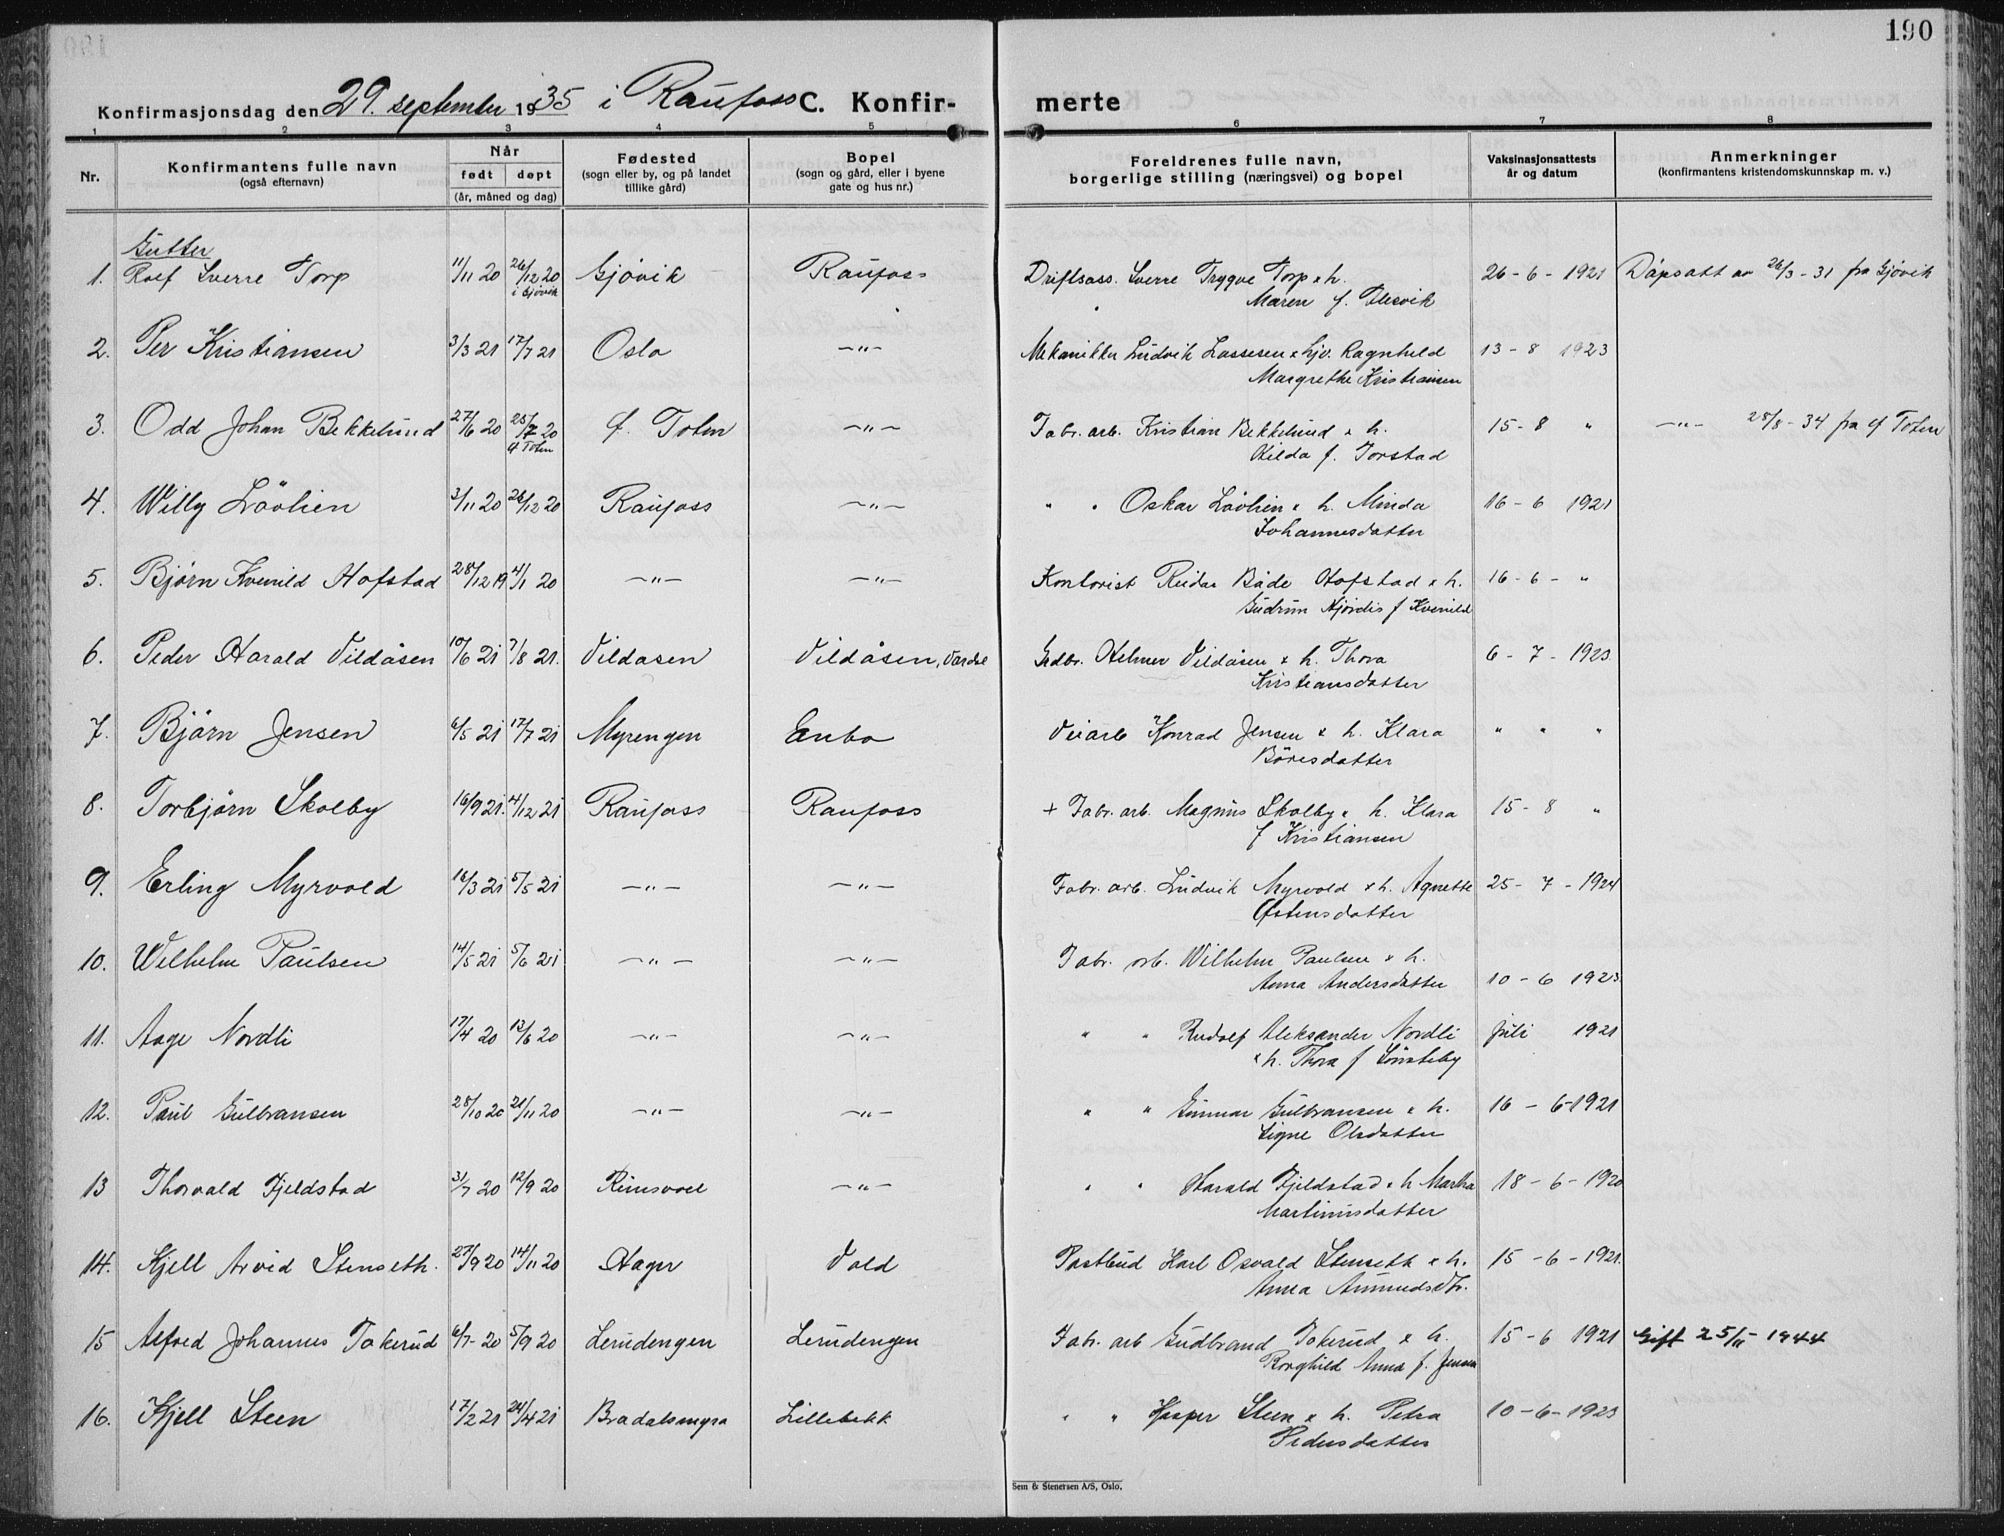 190
Konfirmasjonsdag den 29. september 1935 i Raufoss C. Konfirmerte
1 2 3 4 5 6 7 8
Nr.
Konfirmantens fulle navn
(også efternavn)
Når
født døpt
(år, måned og dag)
Fødested
(sogn eller by, og på landet
tillike gård)
Bopel
(sogn og gård, eller i byene
gate og hus nr.)
Foreldrenes fulle navn,
borgerlige stilling (næringsvei) og bopel
Vaksinasjonsattests
år og datum
Anmerkninger
(konfirmantens kristendomskunnskap m. v.)
Gutter
1. Rolf Sverre Torp 11/11 20 26/12 20 Gjøvik Raufoss Driftsass. Sverre Trygve Torp x h. 26-6-1921 Dåpsatt av 26/3-31 fra Gjøvik
i Gjøvik Maren f.
2. Per Kristiansen 3/3 21 17/7 21 Oslo -"- Mekaniker Ludvik Lassesen x Ljv. Ragnhild 13-8 1923
Margrethe Kristiansen
3. Odd Johan Bekkelund 27/6 20 25/7 20 Ø. Toten -"- Fabr. arb. Kristian Bekkelund x h. 15-8 " -"- 28/8-34 fra Ø Toten
Ø Toten Hilda f. Torstad
4. Willy Løvlien 3/11 20 26/12 20 Raufoss -"- " " Oskar Løvlien x h. Minda 16-6 1921
Johannesdatter
5. Bjørn Kvenild Hofstad 28/12 19 4/1 20 -"- -"- Kontorist Reidar Både Hofstad x h. 16-6- "
Gudrun Hjørdis f Kvenild
6. Peder Harald Vildåsen 10/6 21 7/8 21. Vildåsen Vildåsen, Vardal Grdbr. Helmer Vildåsen x h. Thora 6-7-1923.
Kristiansdatter
7. Bjørn Jensen 6/5 21 17/7 21 Myrengen Enbo Veiarb Konrad Jensen x h. Klara " " "
Böresdatter
8. Torbjørn Skolby 16/9 21. 4/12 21 Raufoss Raufoss + Fabr. arb. Magnus Skolby x h. Klara 15-8 "
f Kristiansen
9. Erling Myrvold 16/3 21 5/5 21 -"- -"- Fabr. arb. Ludvik Myrvold x h. Agnette 25-7-1924
Østensdatter
10. Wilhelm Paulsen 14/5 21 5/6 21 -"- -"- Fabr. arb. Wilhelm Paulsen x h.
Anna Andersdatter 10-6 1923
11. Aage Nordli 17/4 20 13/6 20 -"- -"- " " Rudolf Aleksander Nordli juli 1921
x h. Thora f Sønsteby
12. Paul Gulbransen 28/10 20 21/11 20 -"- -"- " " Gunnar Gulbransen x h. 16-6-1921
Signe Olsdatter
13 Thorvald Fjeldstad 31/7 20 12/9 20 Rimsvoll -"- " " Harald Fjeldstad x h Martha 18-6-1920
Martinusdatter
14. Kjell Arvid Stenseth. 27/9 20 14/11 20 Hager Vold Postbud Karl Osvald Stenseth x h. 15-6-1921.
Anna Amundsdtr.
15 Alfred Johannes Tokerud 6/7-20 5/9 20 Lerudengen Lerudengen Fabr. arb Gudbrand Tokerud x h. 15-6 1921 Gift 25/11-1944
Borghild Anna f. Jensen
16. Kjell Steen 17/2 21 24/4 21 Bradalsmyra Lillebekk " " Kasper Steen x h. Petra 10-6-1923
Pedersdatter
Sem & Stenersen A/S, Oslo.